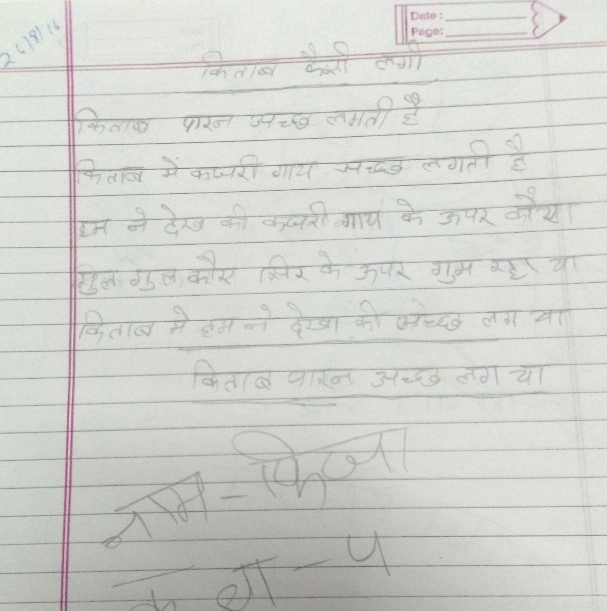 Date :
Page:
किताब कैसी लगी
किताब पारन अच्छ लगती है
किताब में कजरी गाय अच्छ लगती है
हम ने देख की कजरी गाय के ऊपर कौया
गुल गुल कौए सिर के ऊपर गुम रहा था
किताब मे हम ने देखा की अच्छ लग था
किताब पारन अच्छ लग था
नाम - फिजा